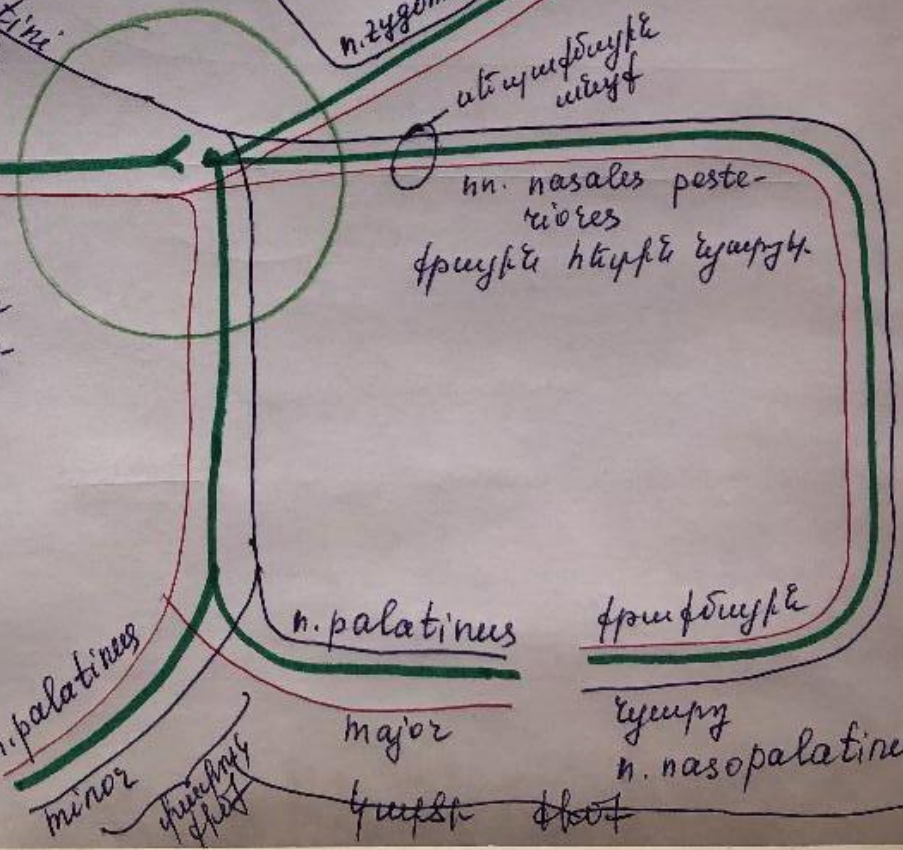 tini
n.zygom
սեպաքմային
անցք
nn. nasales poste-
riores
քթային հետին նյարդկ.
n. palatinus
major
քթաքմային
նյարդ
n. nasopalatinu
n. palatinus
minor
փափուկ
քիմք
կարծր քիմք